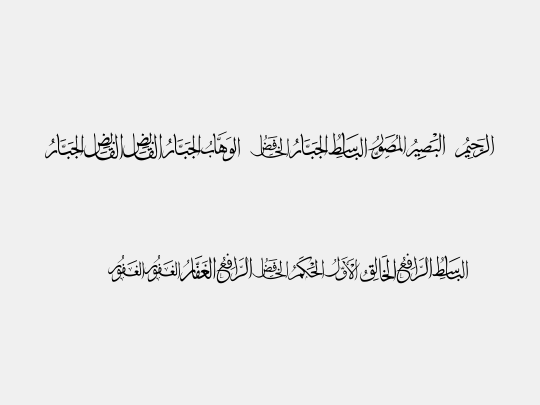 الرحيم البصير المصور الباسط الجبار الخافض الوهاب الجبار القابض القابض الجبار
الباسط الرافع الخالق الأول الحكم الخافض الرافع الغفار الغفور الغفور